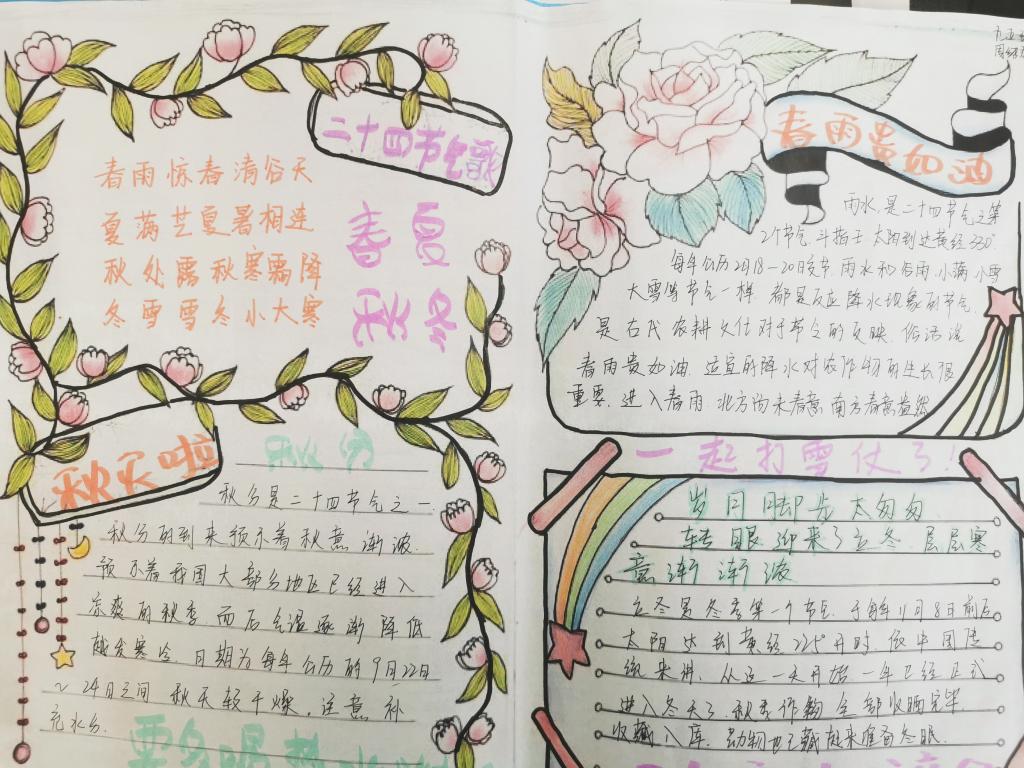 二十四节气歌
春雨惊春清谷天
夏满芒夏暑相连
秋处露秋寒霜降
冬雪雪冬小大寒
春夏
秋冬
秋天啦
秋分
秋分是二十四节气之一
秋分的到来预示着秋意渐浓
预示着我国大部分地区已经进入
凉爽的秋季，而后气温逐渐降低
越发寒冷，日期为每年公历的9月22日
~24日之间 秋天较干燥，注意补
充水分.
要多喝热水
春雨贵如油
雨水，是二十四节气之第
2个节气.斗指壬 太阳到达黄经330°.
每年公历2月18-20日交节.雨水和谷雨.小满.小雪
大雪等节气一样 都是反应降水现象的节气.
是古代农耕文化对于节令的反映.俗话说
春雨贵如油.适宜的降水对农作物的生长很
重要.进入春雨.北方尚未春意.南方春意盎然
一起打雪仗了!
岁月脚步太匆匆.
转眼迎来了立冬.层层寒
意渐渐浓
立冬是冬季第一个节气.于每年11月8日前后
太阳达到黄经225°开时.依中国传
统来讲，从这一天开始一年已经正式
进入冬天了.秋季作物全部收晒完毕
收藏入库.动物也已藏起来准备冬眠.